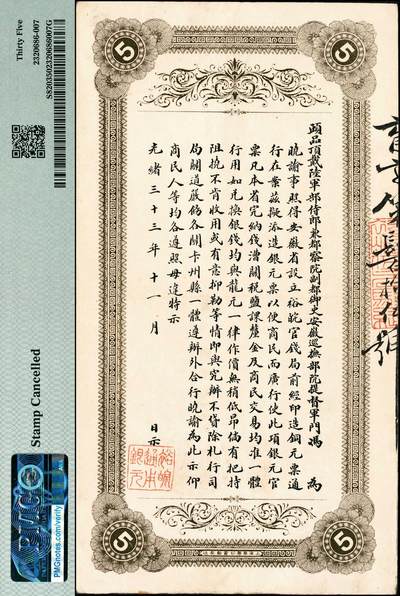 Thirty Five
2320686-007
S882035023206860076
Stamp Cancelled
PMG
PMGnotes.com/verify
5
5
頭品頂戴陸軍部侍郎兼都察院副都御史安徽巡撫部院提督軍門馮 為
曉諭事照得安徽省設立裕皖官錢局前經印造銅元票通
行在案茲擬添造銀元票以便商民而廣行使此項銀元官
票凡本省完納錢漕關稅鹽課釐金及商民交易均准一體
行用如兑換銀錢均與龍元一律作價無稍低昂倘有把持
阻撓不肯收用或有意抑勒等情即與究辦不貸除札行司
局關道嚴飭各關卡州縣一體遵辦外合行曉諭為此示仰
商民人等均各遵照毋違特示
光緒三十三年十一月 日示
裕皖
通本
銀元
5
5